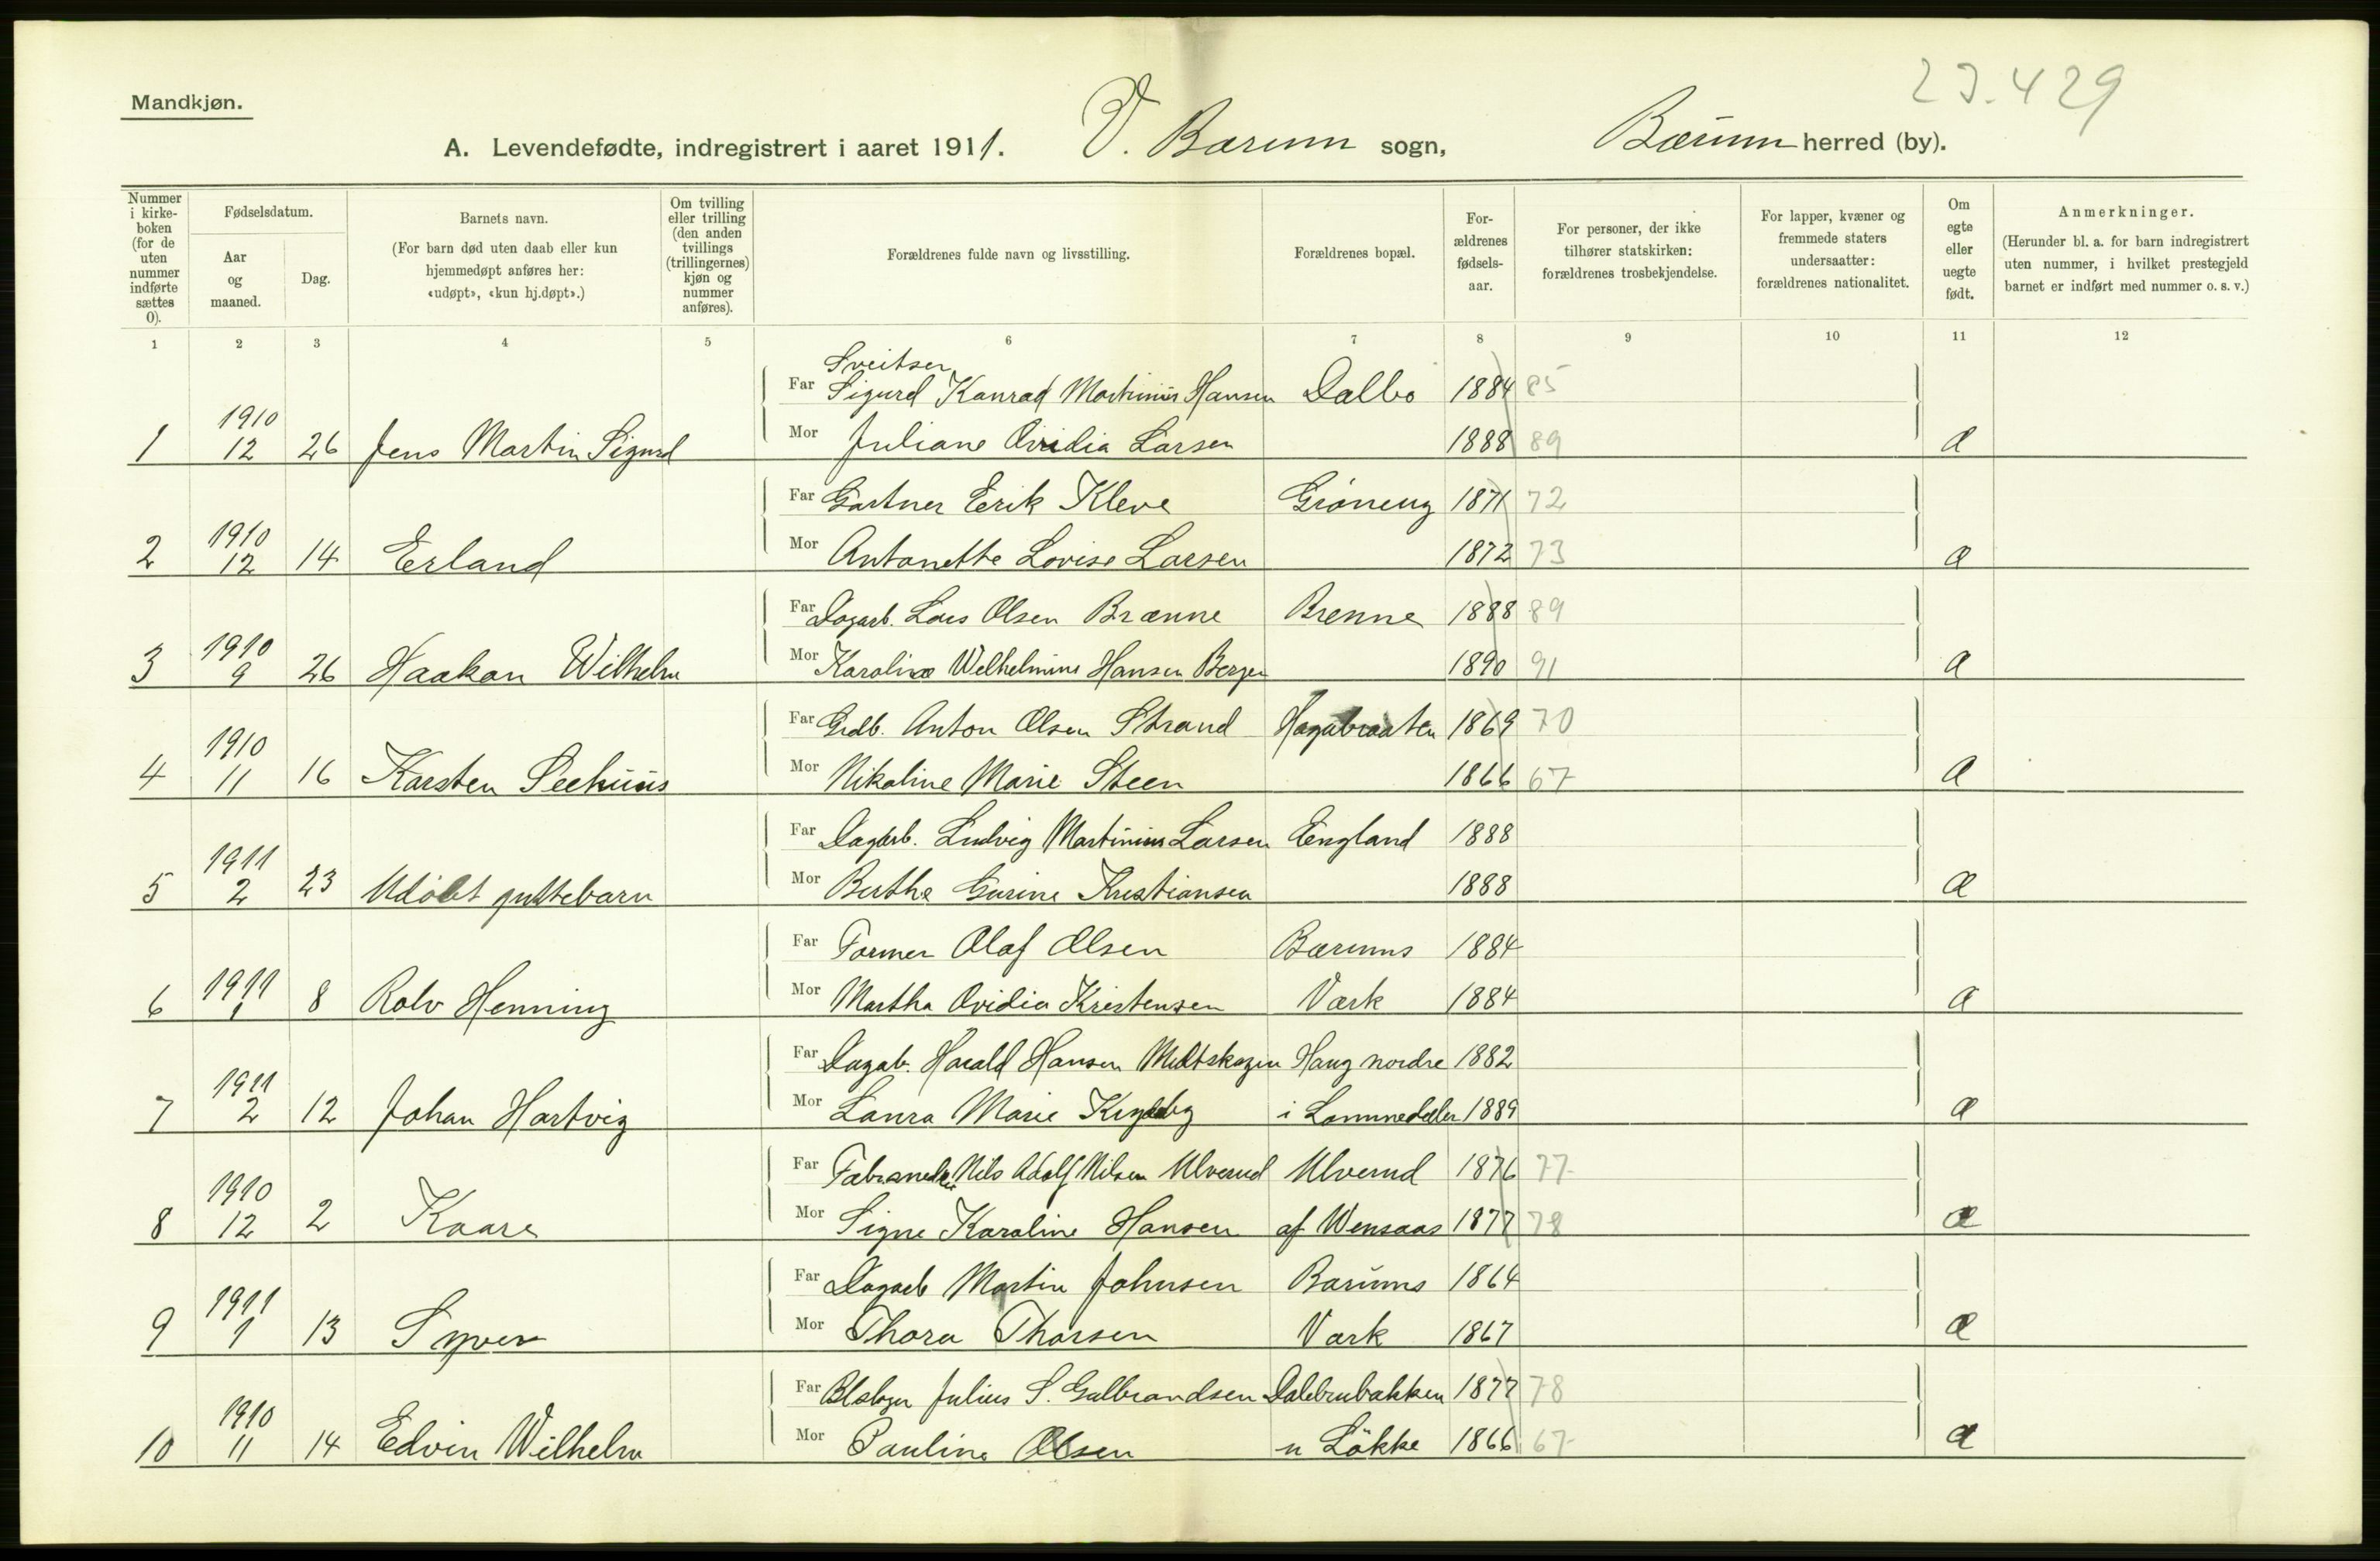 23.429
Mandkjøn.
A. Levendefødte, indregistrert i aaret 1911. V. Bærum sogn, Bærum herred (by).
Nummer i kirke-boken (for de uten nummer indførte sættes 0).
Fødselsdatum.
Aar og maaned.
Dag.
Barnets navn.
(For barn død uten daab eller kun hjemmedøpt anføres her: «udøpt», «kun hj.døpt».)
Om tvilling eller trilling (den anden tvillings (trillingernes) kjøn og nummer anføres).
Forældrenes fulde navn og livsstilling.
Forældrenes bopæl.
For-ældrenes fødsels-aar.
For personer, der ikke tilhører statskirken: forældrenes trosbekjendelse.
For lapper, kvæner og fremmede staters undersaatter: forældrenes nationalitet.
Om egte eller uegte født.
Anmerkninger.
(Herunder bl. a. for barn indregistrert uten nummer, i hvilket prestegjeld barnet er indført med nummer o. s. v.)
1 2 3 4 5 6 7 8 9 10 11 12
Sveitser
Far Sigurd Konrad Martinius Hansen Dalbo 1884 85
1910
1 12 26 Jens Martin Sigurd Mor Juliane Ovidia Larsen 1888 89 Æ
Far Gartner Erik Kleve Grøneng 1871 72
1910
2 12 14 Erland Mor Antonette Lovise Larsen 1872 73 Æ
Far Dagarb. Lars Olsen Brænne Brenne 1888 89
1910
3 9 26 Haakon Wilhelm Mor Karoline Welhelmine Hansen Berger 1890 91 Æ
Far Grdb. Anton Olsen Strand Hagabraaten 1869 70
1910
4 11 16 Karsten Seehuus Mor Nikoline Marie Steen 1866 67 Æ
Far Dagarb. Ludvig Martinius Larsen Eengland 1888
1911
5 2 23 Udøbt guttebarn Mor Berthe Gurine Kristiansen 1888 Æ
Far Former Olaf Olsen Bærums 1884
1911
6 1 8 Rolv Henning Mor Martha Ovidia Kristensen Værk 1884 Æ
Far Dagab. Harald Hansen Midtskogen Haug nordre 1882
1911
7 2 12 Johan Hartvig Mor Laura Marie i Lommedalen 1889 Æ
Far Nils Adolf Nilsen Ulverud Ulverud 1876 77
1910
8 12 2 Kaare Mor Signe Karoline Hansen af Wensaas 1877 78 Æ
Far Dagarb Martin Johnsen Bærums 1864
1911
9 1 13 Syver Mor Thora Thorsen Værk 1867 Æ
Far Julius S. Gulbrandsen Dalebrubakken 1877 78
1910
10 11 14 Edvin Wilhelm Mor Pauline Olsen u Løkke 1866 67 Æ